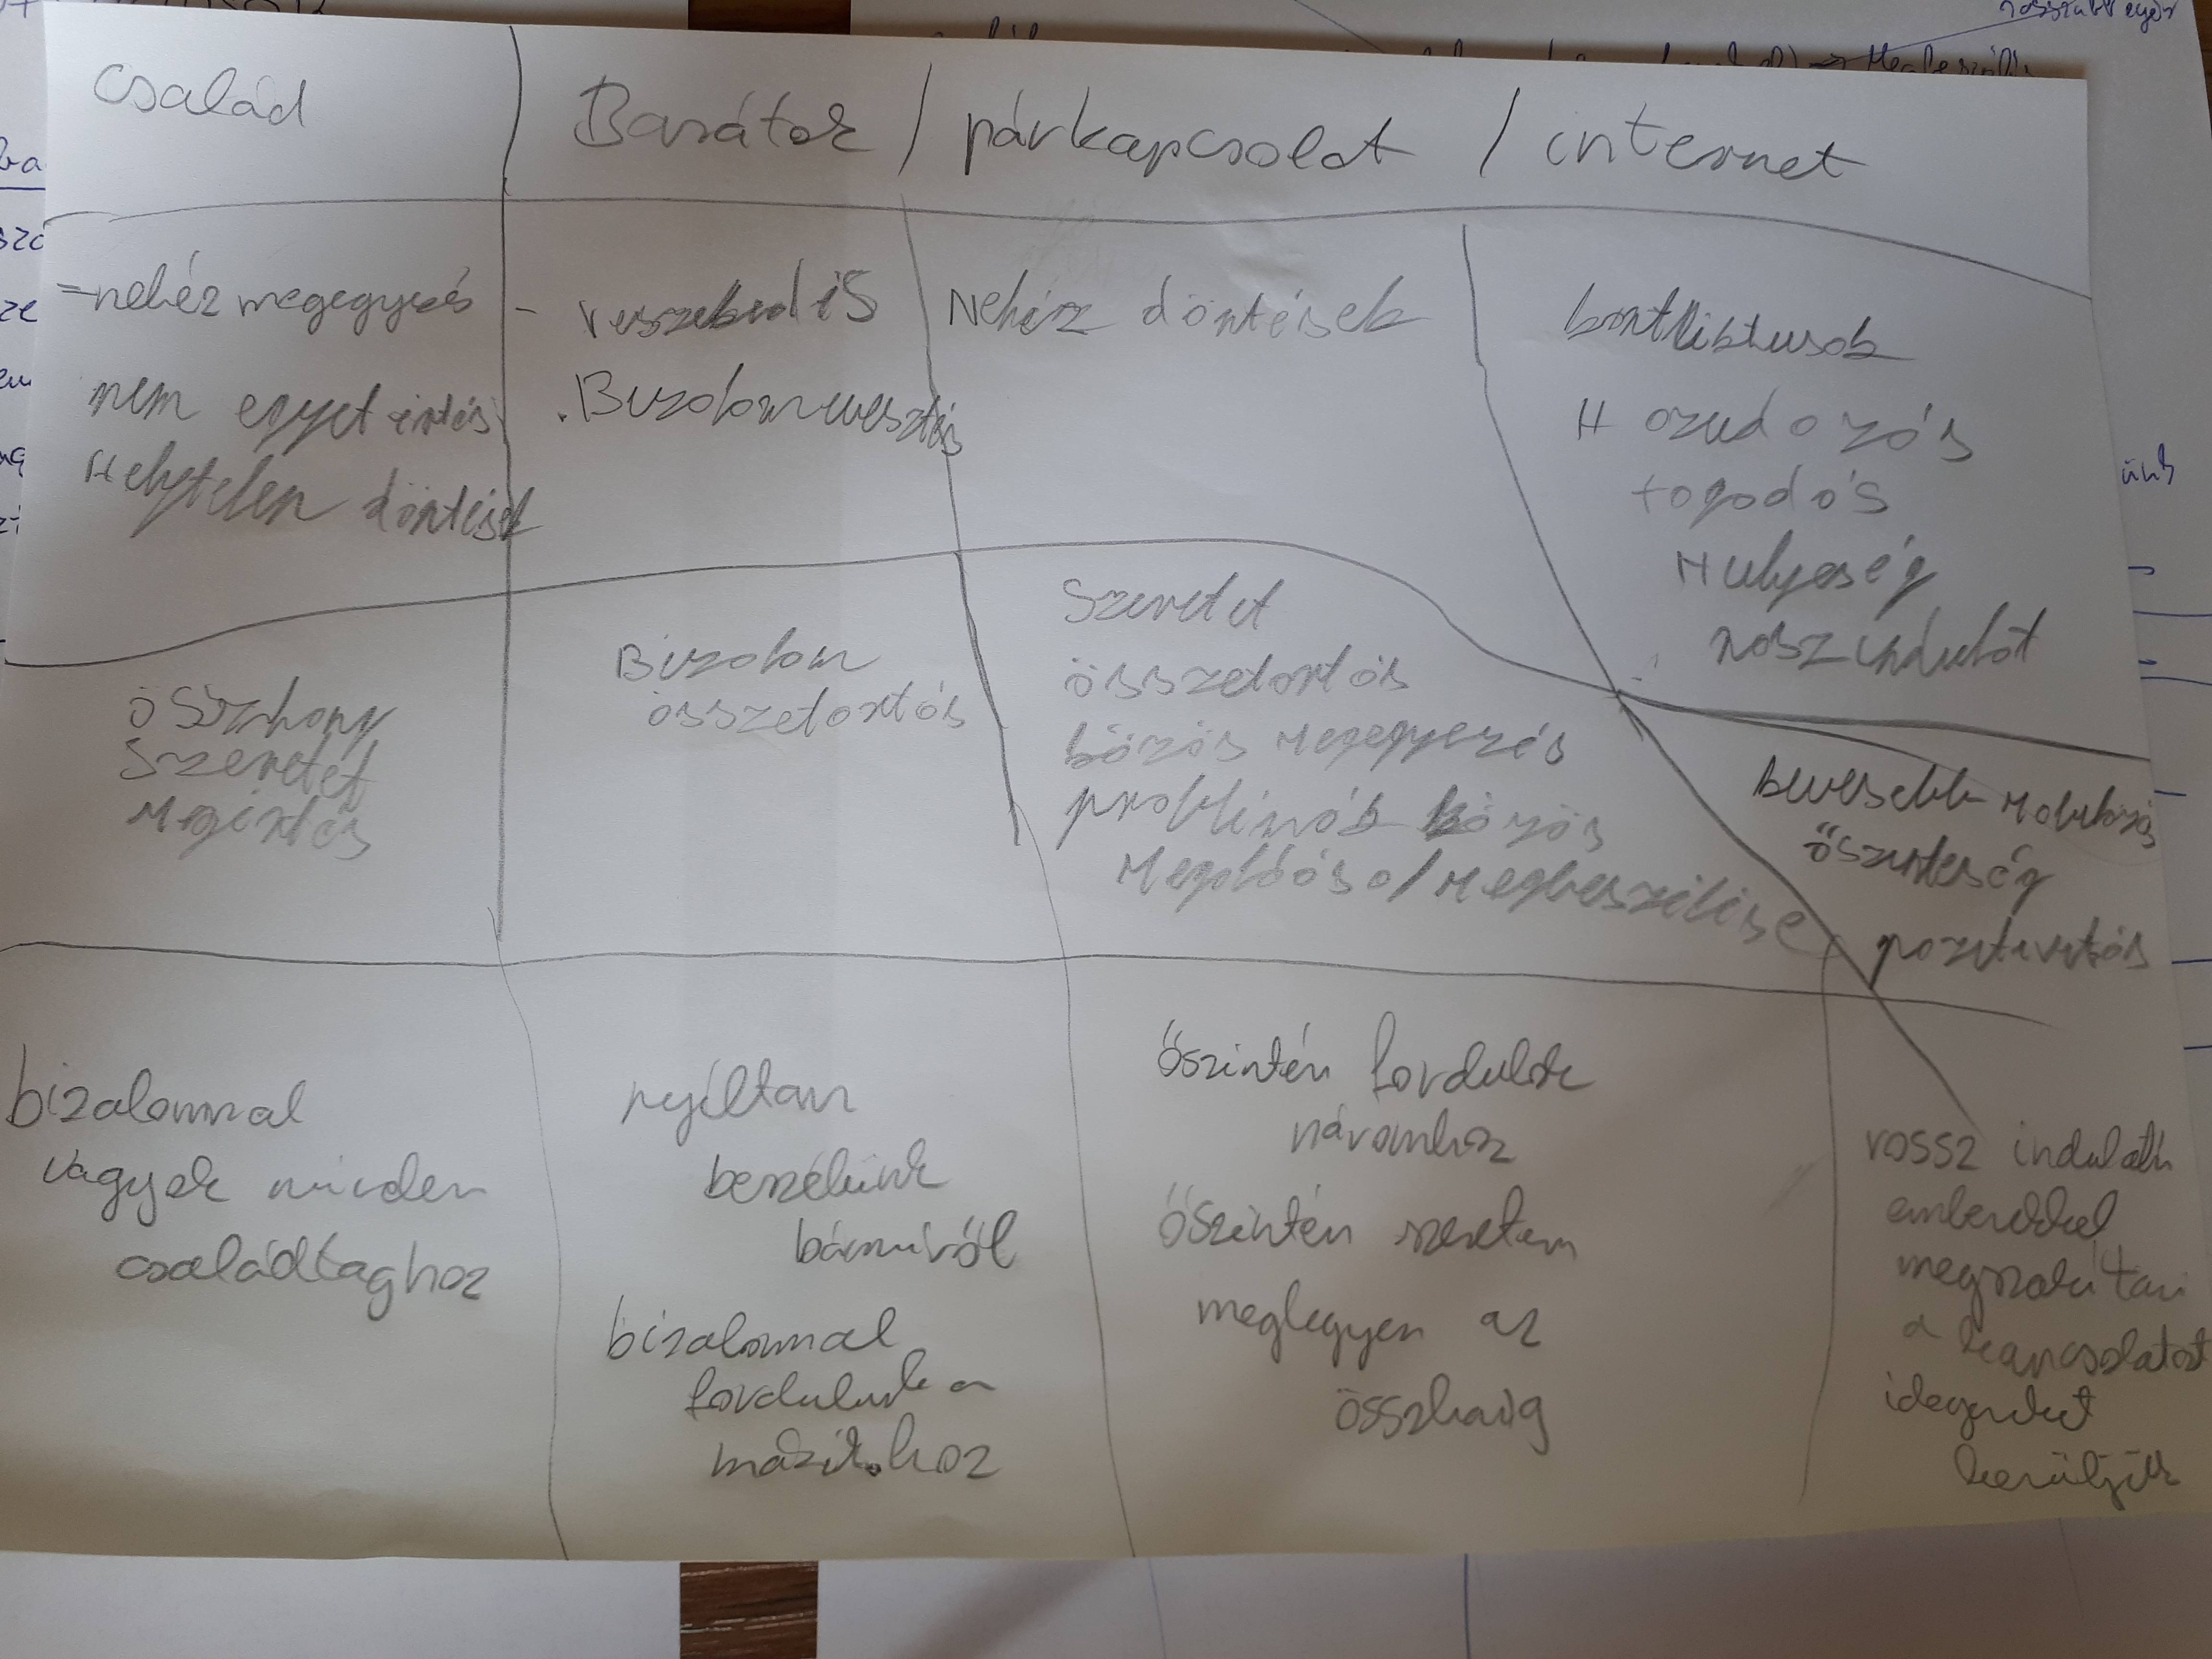 család Barátok / párkapcsolat / internet
- nehéz megegyezés
nem egyet értés
Helytelen döntések
- veszekedés
. Bizalomvesztés
Nehéz döntések
konfliktusok
Hazudozás
fogadás
Hülyeség
rosz indulat
öszhang
szeretet
Megértés
Bizalom
összetartás
Szeretet
összetartás
közös Megegyezés
problémák közös
Megoldása / Megbeszélése
kevesebb
őszinteség
pozitivitás
bizalommal
vagyok minden
családtaghoz
nyíltan
beszélünk
bármiről
bizalommal
fordulunk a
másikhoz
őszintén fordulok
páromhoz
őszintén szeretem
meglegyen az
összhang
rossz indulatú
emberekkel
megszakítani
a kapcsolatot
idegeneket
kerüljük